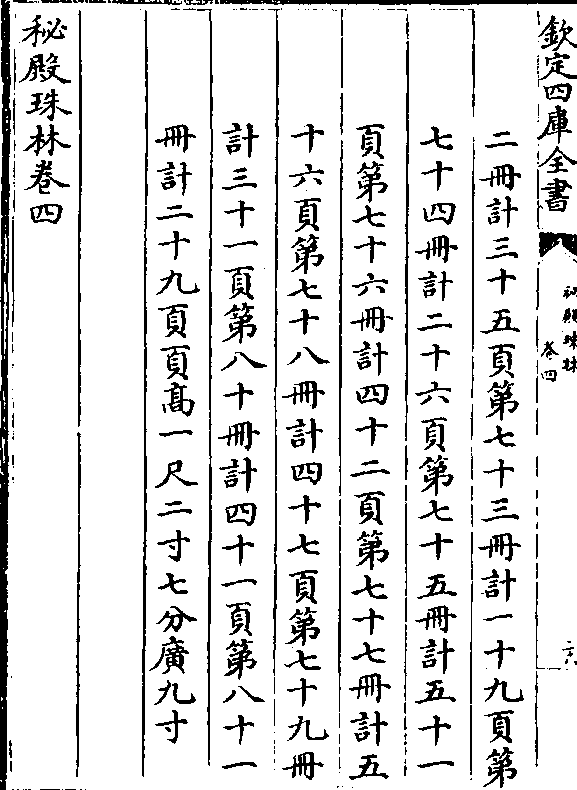 欽定四庫全書
秘殿珠林
卷四
二冊計三十五頁第七十三冊計一十九頁第
七十四冊計二十六頁第七十五冊計五十一
頁第七十六冊計四十二頁第七十七冊計五
十六頁第七十八冊計四十七頁第七十九冊
計三十一頁第八十冊計四十一頁第八十一
冊計二十九頁頁髙一尺二寸七分廣九寸
秘殿珠林卷四